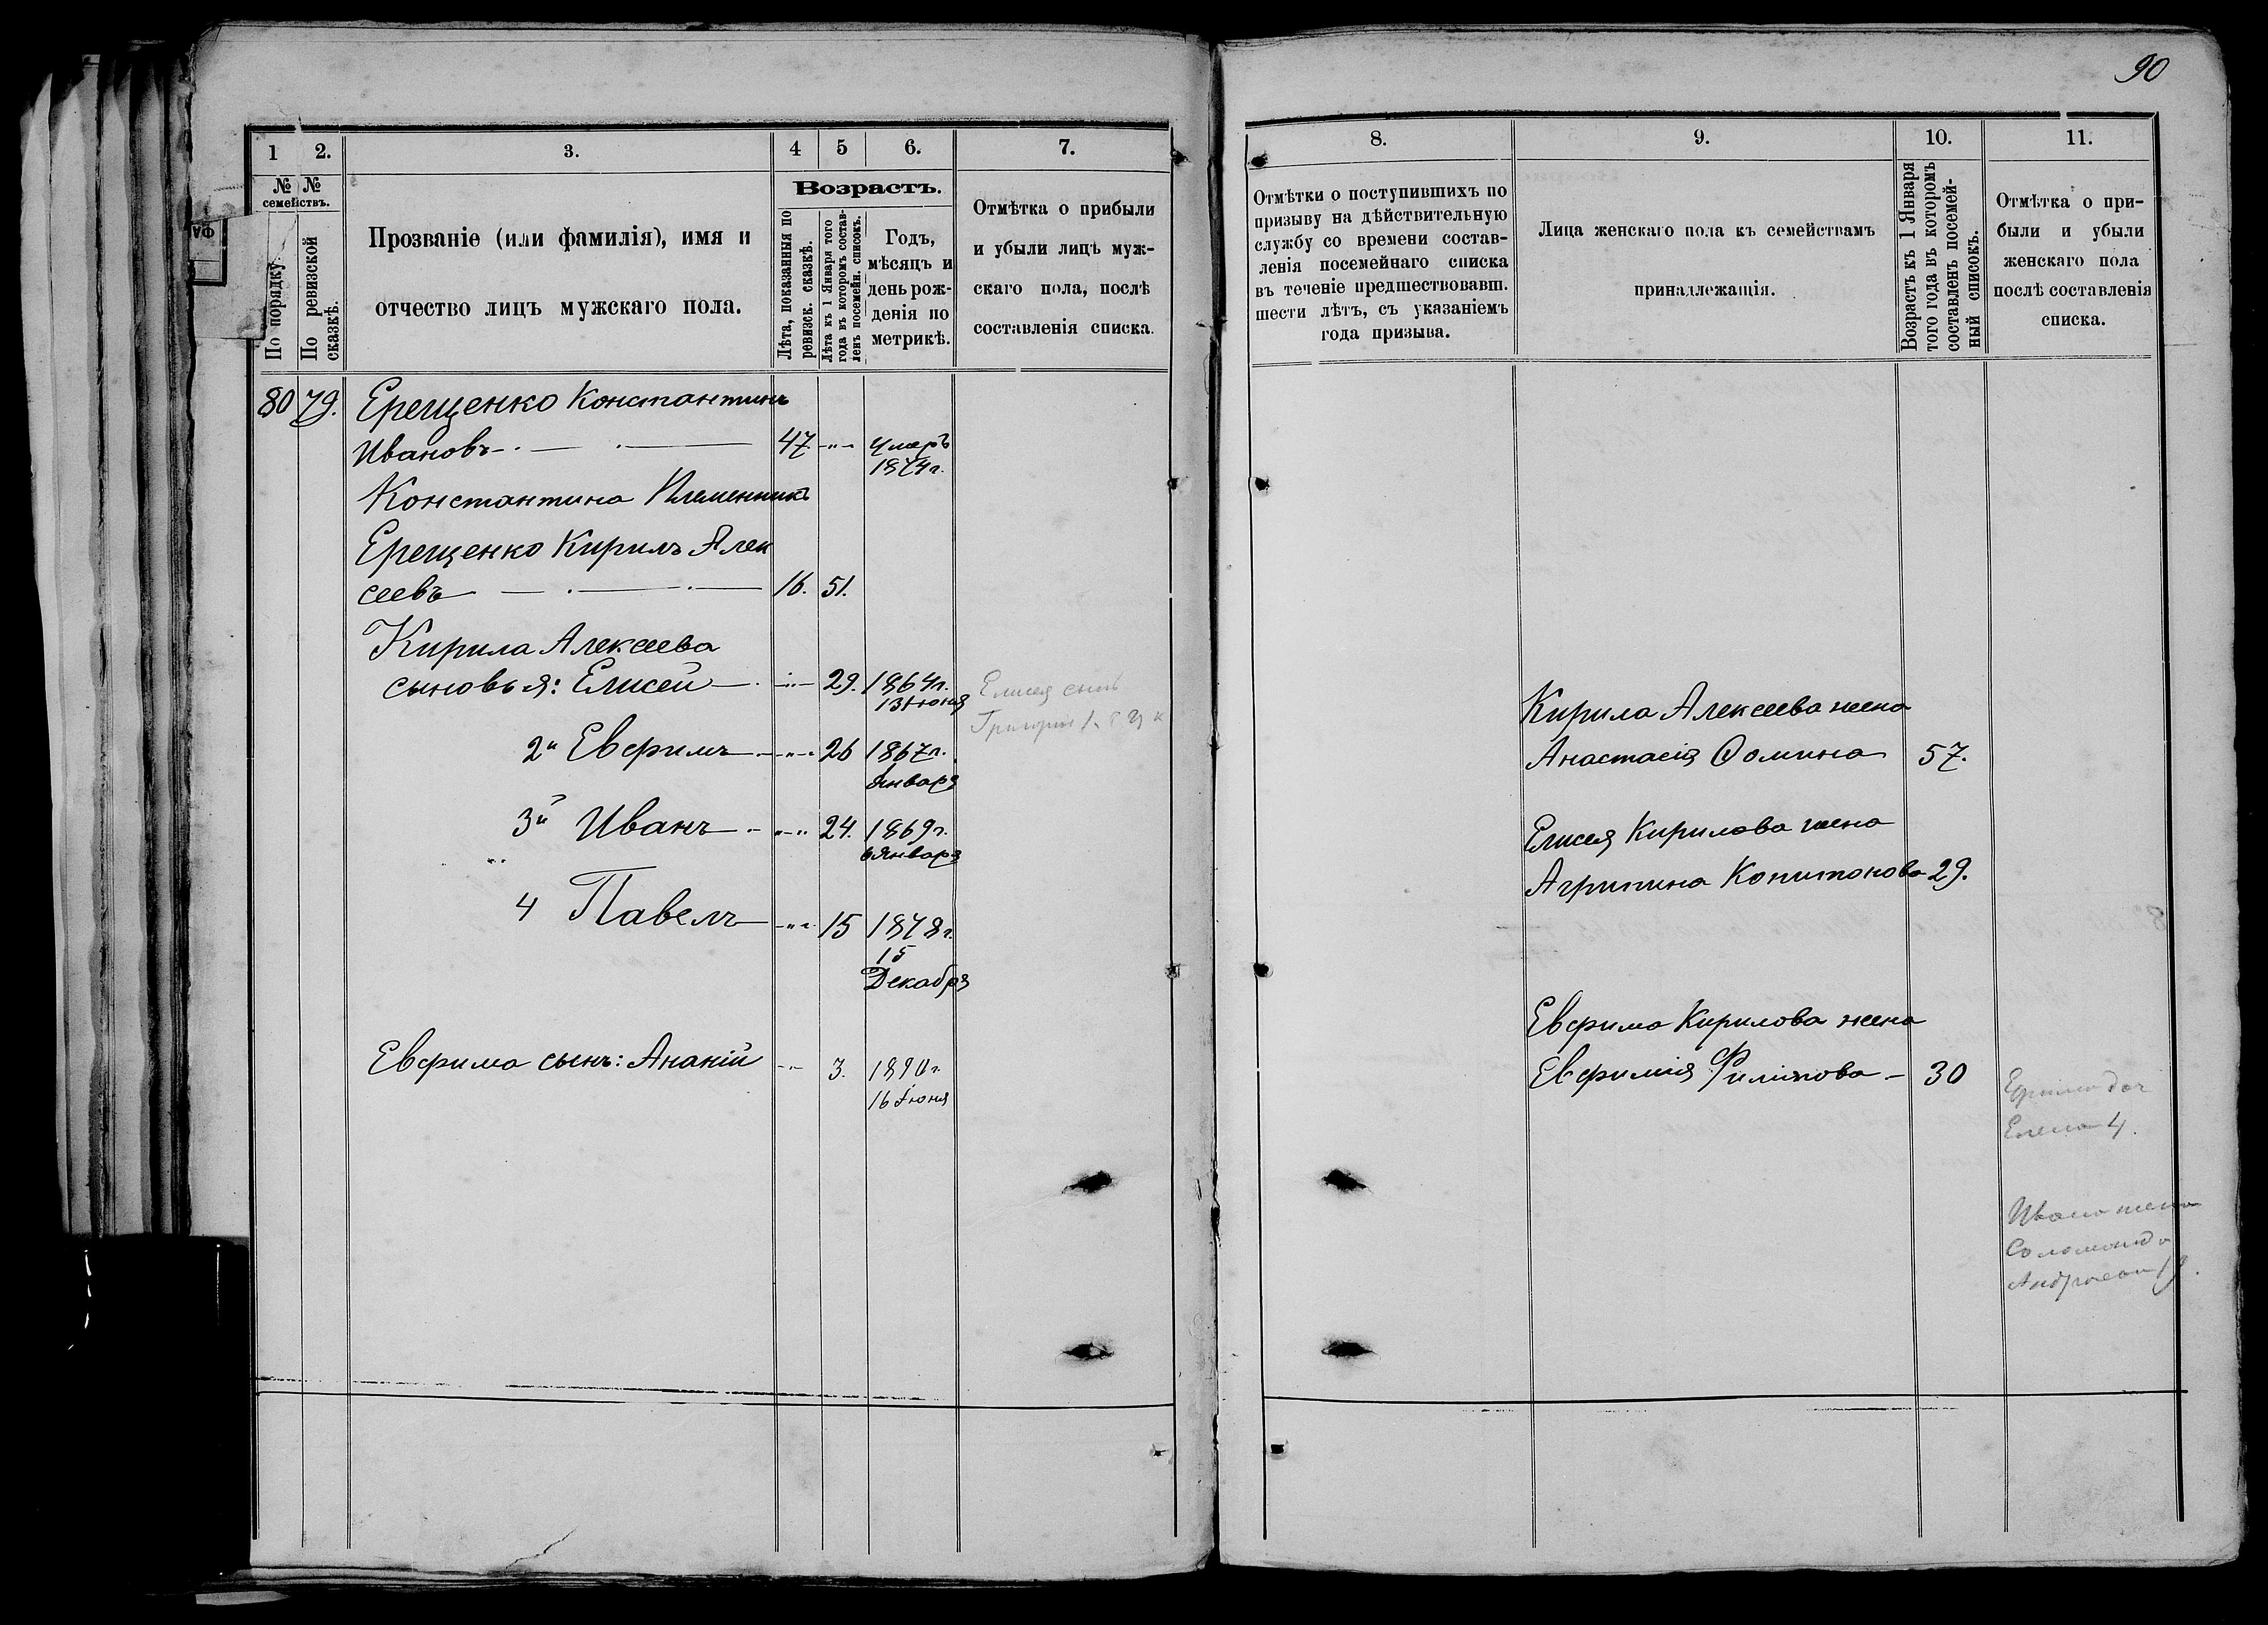 90
1
2.
3.
4
5
6.
7.
№ №
семействъ.
По порядку.
По ревизской
сказкѣ.
Прозваніе (или фамилія), имя и
отчество лицъ мужскаго пола.
Возрастъ.
Лѣта, показанныя по
ревизск. сказкѣ.
Лѣта къ 1 Января того
года въ которомъ состав-
ленъ посемейн. списокъ.
Годъ,
мѣсяцъ и
день рож-
денія по
метрикѣ.
Отмѣтка о прибыли
и убыли лицъ муж-
скаго пола, послѣ
составленія списка.
80 79. Ерещенко Константинъ
Ивановъ 47 умеръ
1874г.
Константина Племенникъ
Ерещенко Кирилъ Алек
сеевъ 16. 51.
Кирила Алексеева
сыновья: Елисей 29. 1864г.
13 Іюня
Елисея сынъ
Григорій
2й Евфимъ 26 1867г.
Января
3й Иванъ 24. 1869г.
6 Января
4 Павелъ 15 1878г.
15
Декабря
Евфима сынъ: Ананій 3. 1890г.
16 Іюня
8.
9.
10.
11.
Отмѣтки о поступившихъ по
призыву на дѣйствительную
службу со времени состав-
ленія посемейнаго списка
въ теченіе предшествовавш.
шести лѣтъ, съ указаніемъ
года призыва.
Лица женскаго пола къ семействамъ
принадлежащія.
Возрастъ къ 1 Января
того года въ которомъ
составленъ посемей-
ный списокъ.
Отмѣтка о при-
были и убыли
женскаго пола
послѣ составленія
списка.
Кирила Алексеева жена
Анастасія Фомина 57.
Елисея Кирилова жена
Агрипина Копитонова 29.
Евфима Кирилова жена
Евфимія Филипова 30
Ефима доч
Елена 4.
Ивана жена
Соломонида